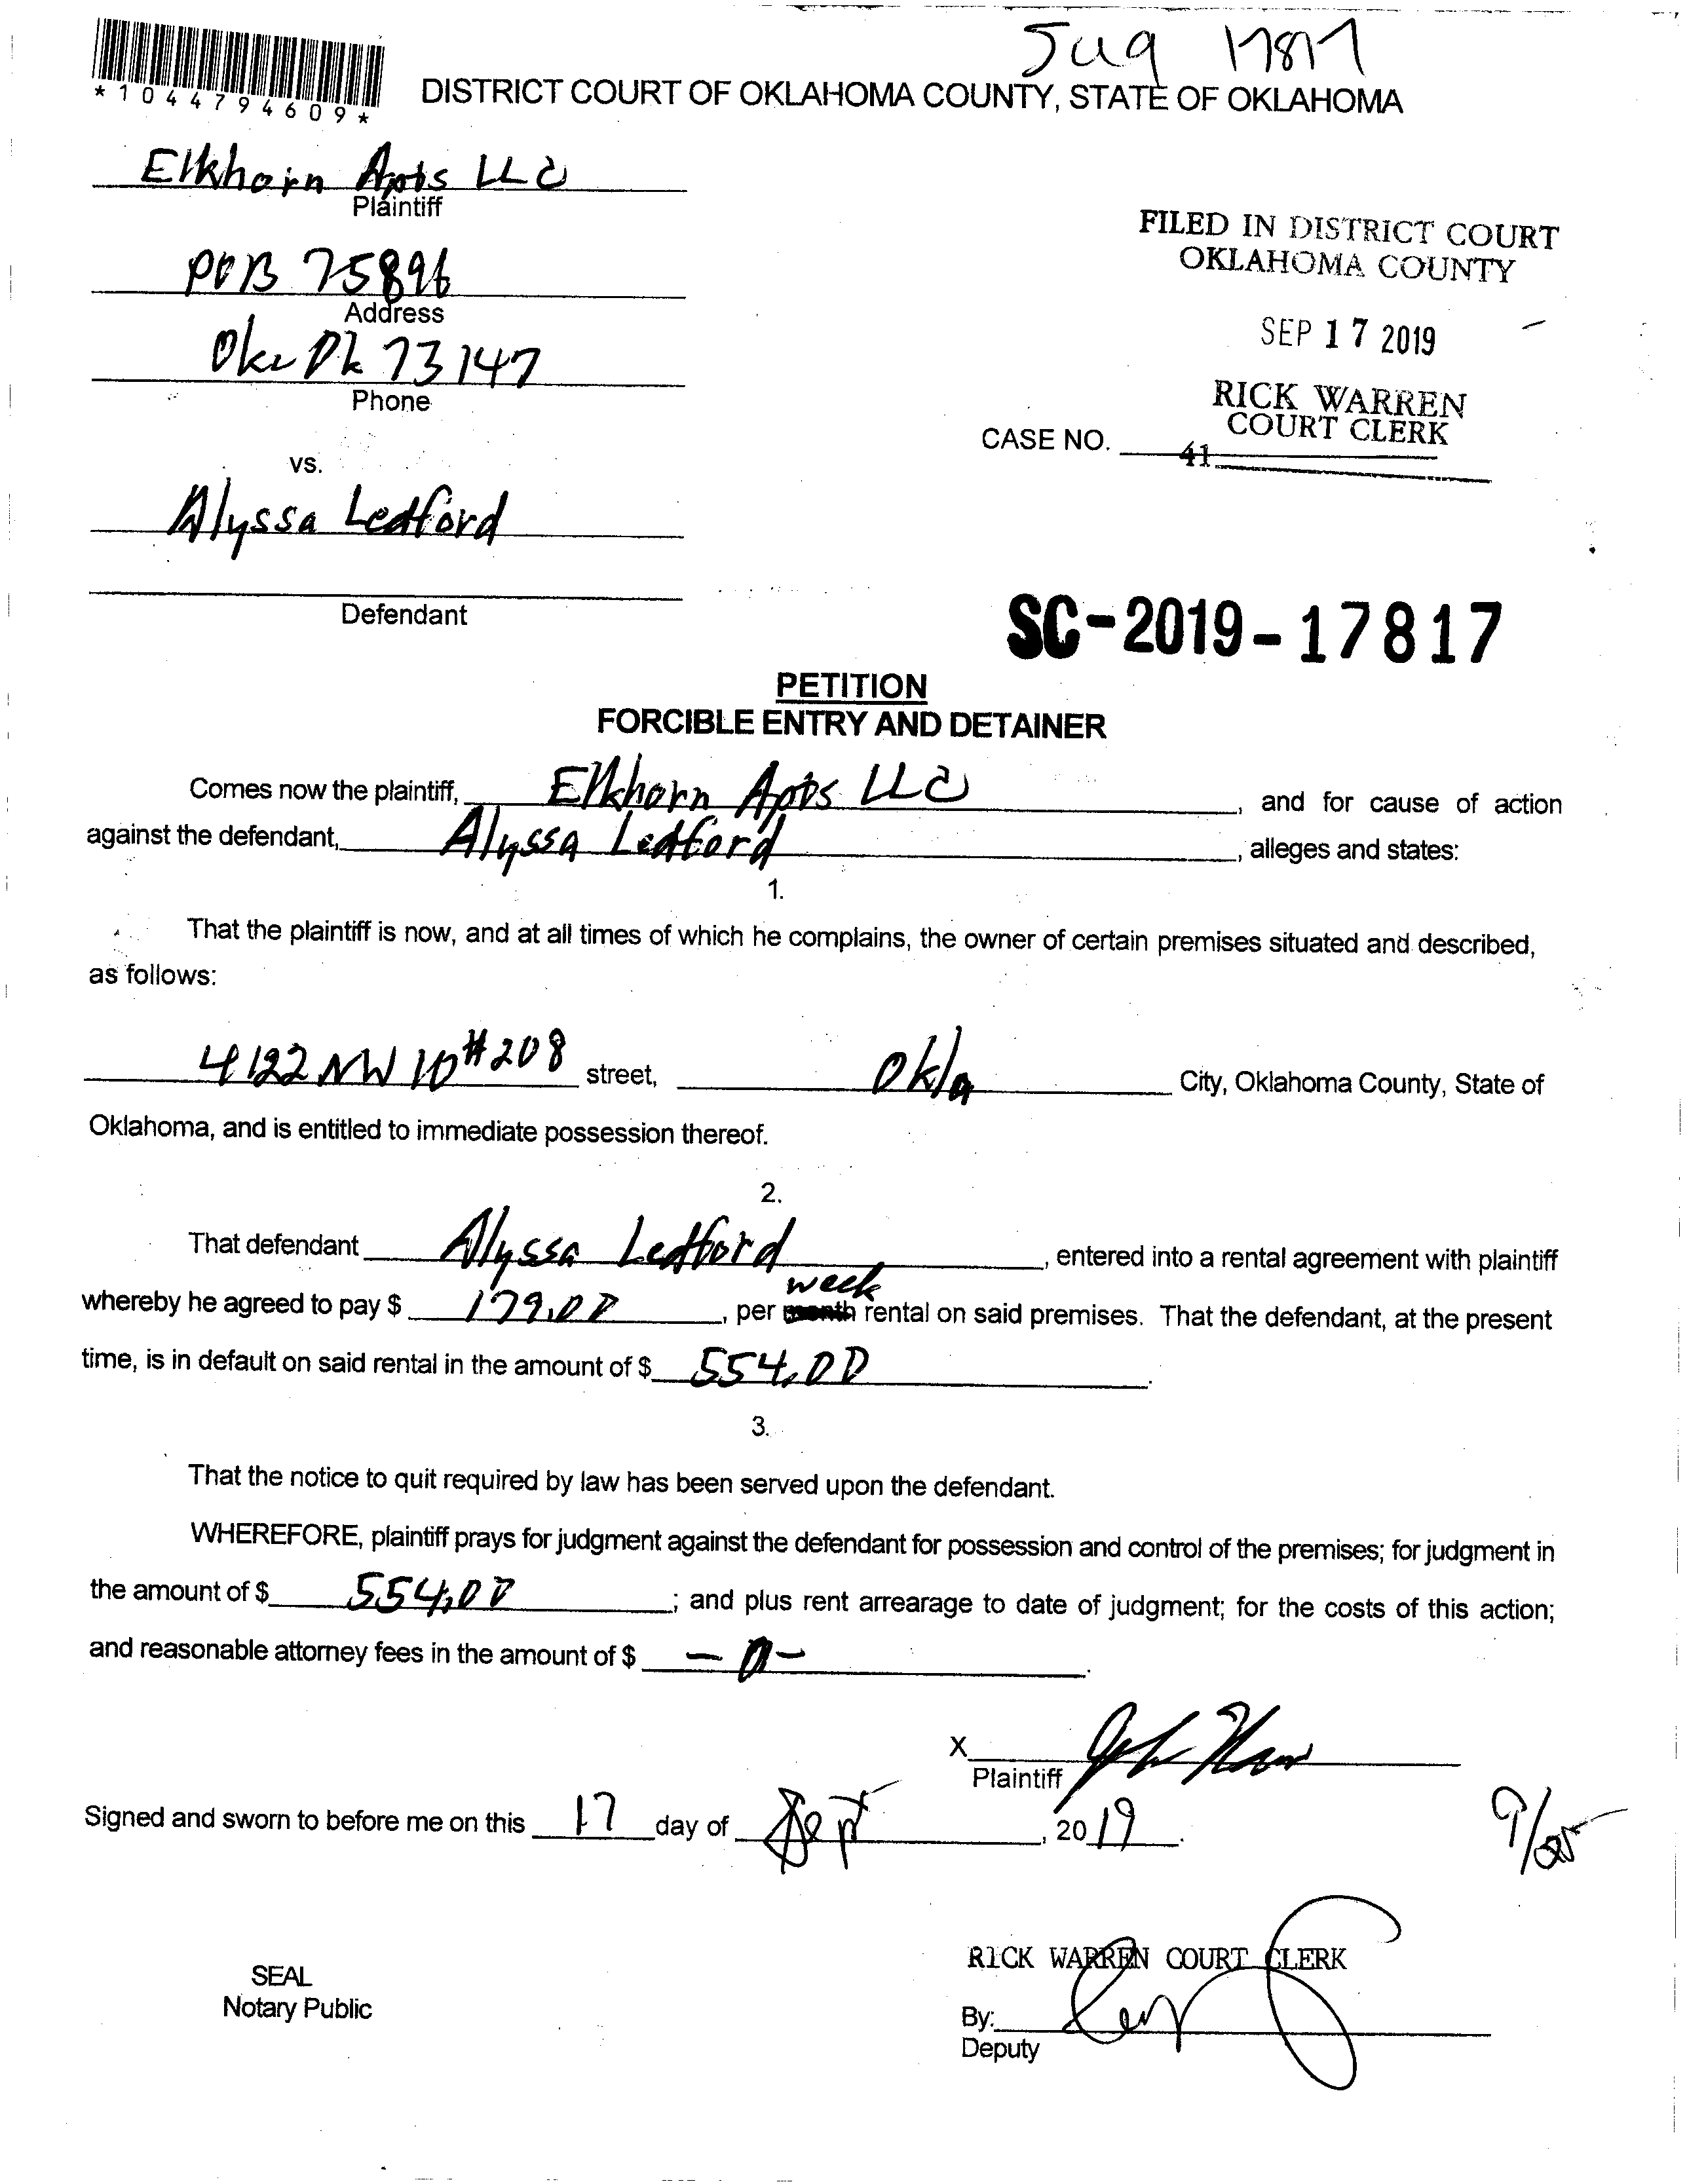 Jug 17817
*1044794609*
DISTRICT COURT OF OKLAHOMA COUNTY, STATE OF OKLAHOMA
Elkhorn Apts LLC
Plaintiff
POB 75896
Address
Okc Ok 73147
Phone
FILED IN DISTRICT COURT
OKLAHOMA COUNTY
SEP 17 2019
RICK WARREN
COURT CLERK
CASE NO.
41
vs.
Alyssa Ledford
Defendant
SC-2019-17817
PETITION
FORCIBLE ENTRY AND DETAINER
Comes now the plaintiff, Elkhorn Apts LLC, and for cause of action
against the defendant, Alyssa Ledford, alleges and states:
1.
That the plaintiff is now, and at all times of which he complains, the owner of certain premises situated and described,
as follows:
4122 NW 10 #208 street, Okla City, Oklahoma County, State of
Oklahoma, and is entitled to immediate possession thereof.
2.
That defendant Alyssa Ledford, entered into a rental agreement with plaintiff
week
whereby he agreed to pay $ 179.00, per month rental on said premises. That the defendant, at the present
time, is in default on said rental in the amount of $ 554.00.
3.
That the notice to quit required by law has been served upon the defendant.
WHEREFORE, plaintiff prays for judgment against the defendant for possession and control of the premises; for judgment in
the amount of $ 554.00; and plus rent arrearage to date of judgment; for the costs of this action;
and reasonable attorney fees in the amount of $ -0-.
X
Plaintiff
Signed and sworn to before me on this 17 day of Sept, 2019.
9/25
RICK WARREN COURT CLERK
SEAL
Notary Public
By:
Deputy